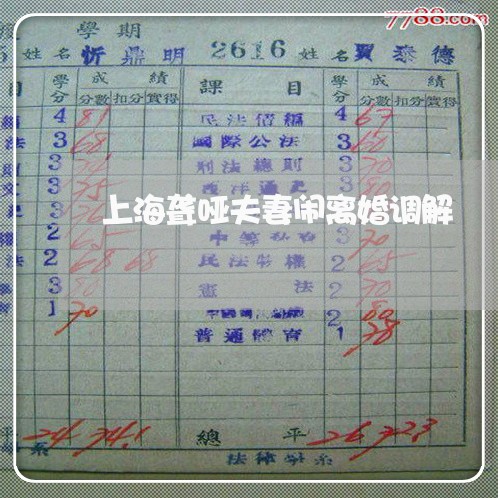 7788.com
學期
姓名 忻鼎明 2616 姓名 賈泰德
目 學分 成績 課目 學分 成績
分數 扣分 實得 分數 扣分 實得
4 81 民法債編 4 67
法 3 68 國際公法 3 60
則 3 刑法總則 3 70
文 3 75 西洋通史 3 80
上海聋哑夫妻闹离婚调解
權 2 65 3 70
法 2 68 68 民法物權 2 65
3 80 憲法 2 70
育 1 70 2 80
普通體育 1 78
平 24 74.1 總平 26 72.3
系 法律學系